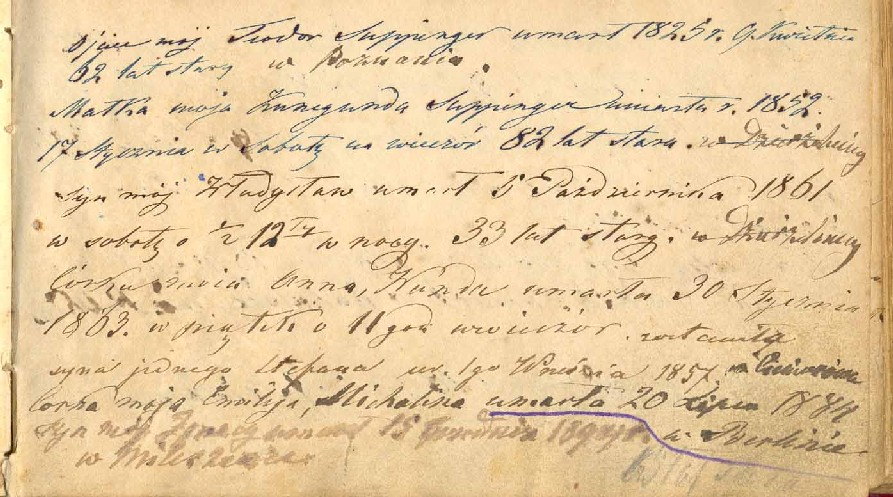 Ojciec mój Teodor Suppinger umart 1825 r. 9 Kwietnia
62 lat stary w Poznaniu.
Matka moja Kunegunda Suppinger umarta r. 1852.
17 Stycznia w Sobotę na wieczór 82 lat stara. w
syn mój Władysław umart 5 Października 1861
w sobotę o ½ 12 w nocy. 33 lat stary. w
Córka moia Anna, Kunda umarta 30 Stycznia
1863. w piątek o 11 god wwieczór. zostawiła
syna jednego Stefana ur. 1go Wrśnia 1857
Corka moja Emilija, Michalina umarta 20 Lipca 1884
syn mój Ignacy umart 15 Grudnia w Berlinie
w